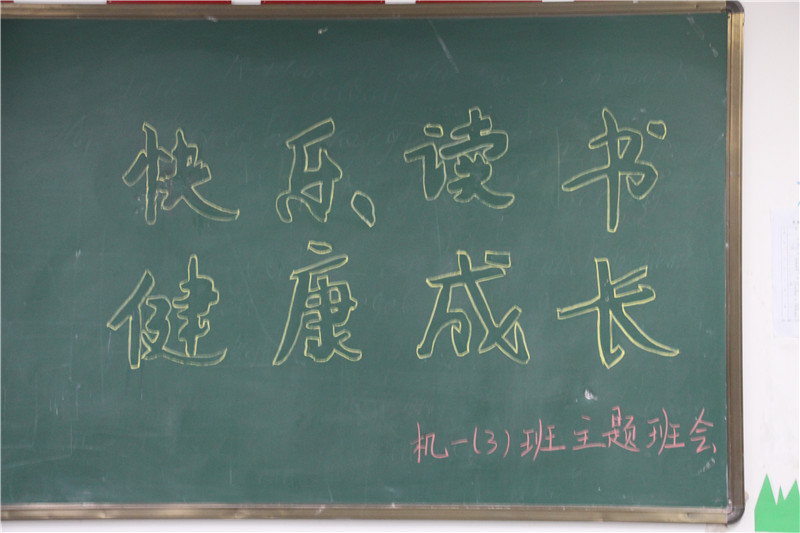 快乐读书
健康成长
机一(3)班主题班会